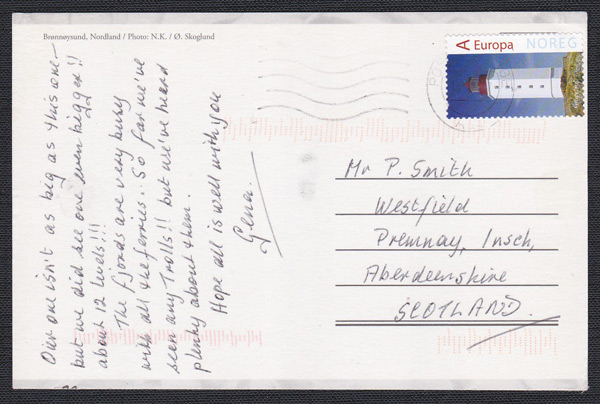 Brønnøysund, Nordland / Photo: N.K. / Ø. Skoglund
Our one isn't as big as this one-
but we did see one even bigger!!
about 12 levels!!!
The fjords are very busy
with all the ferries. So far we've
seen any Trolls!! but we've heard
plenty about them.
Hope all is well with you
Gena.
A Europa NOREG
Mr P. Smith
Westfield
Premnay, Insch,
Aberdeenshire
SCOTLAND.